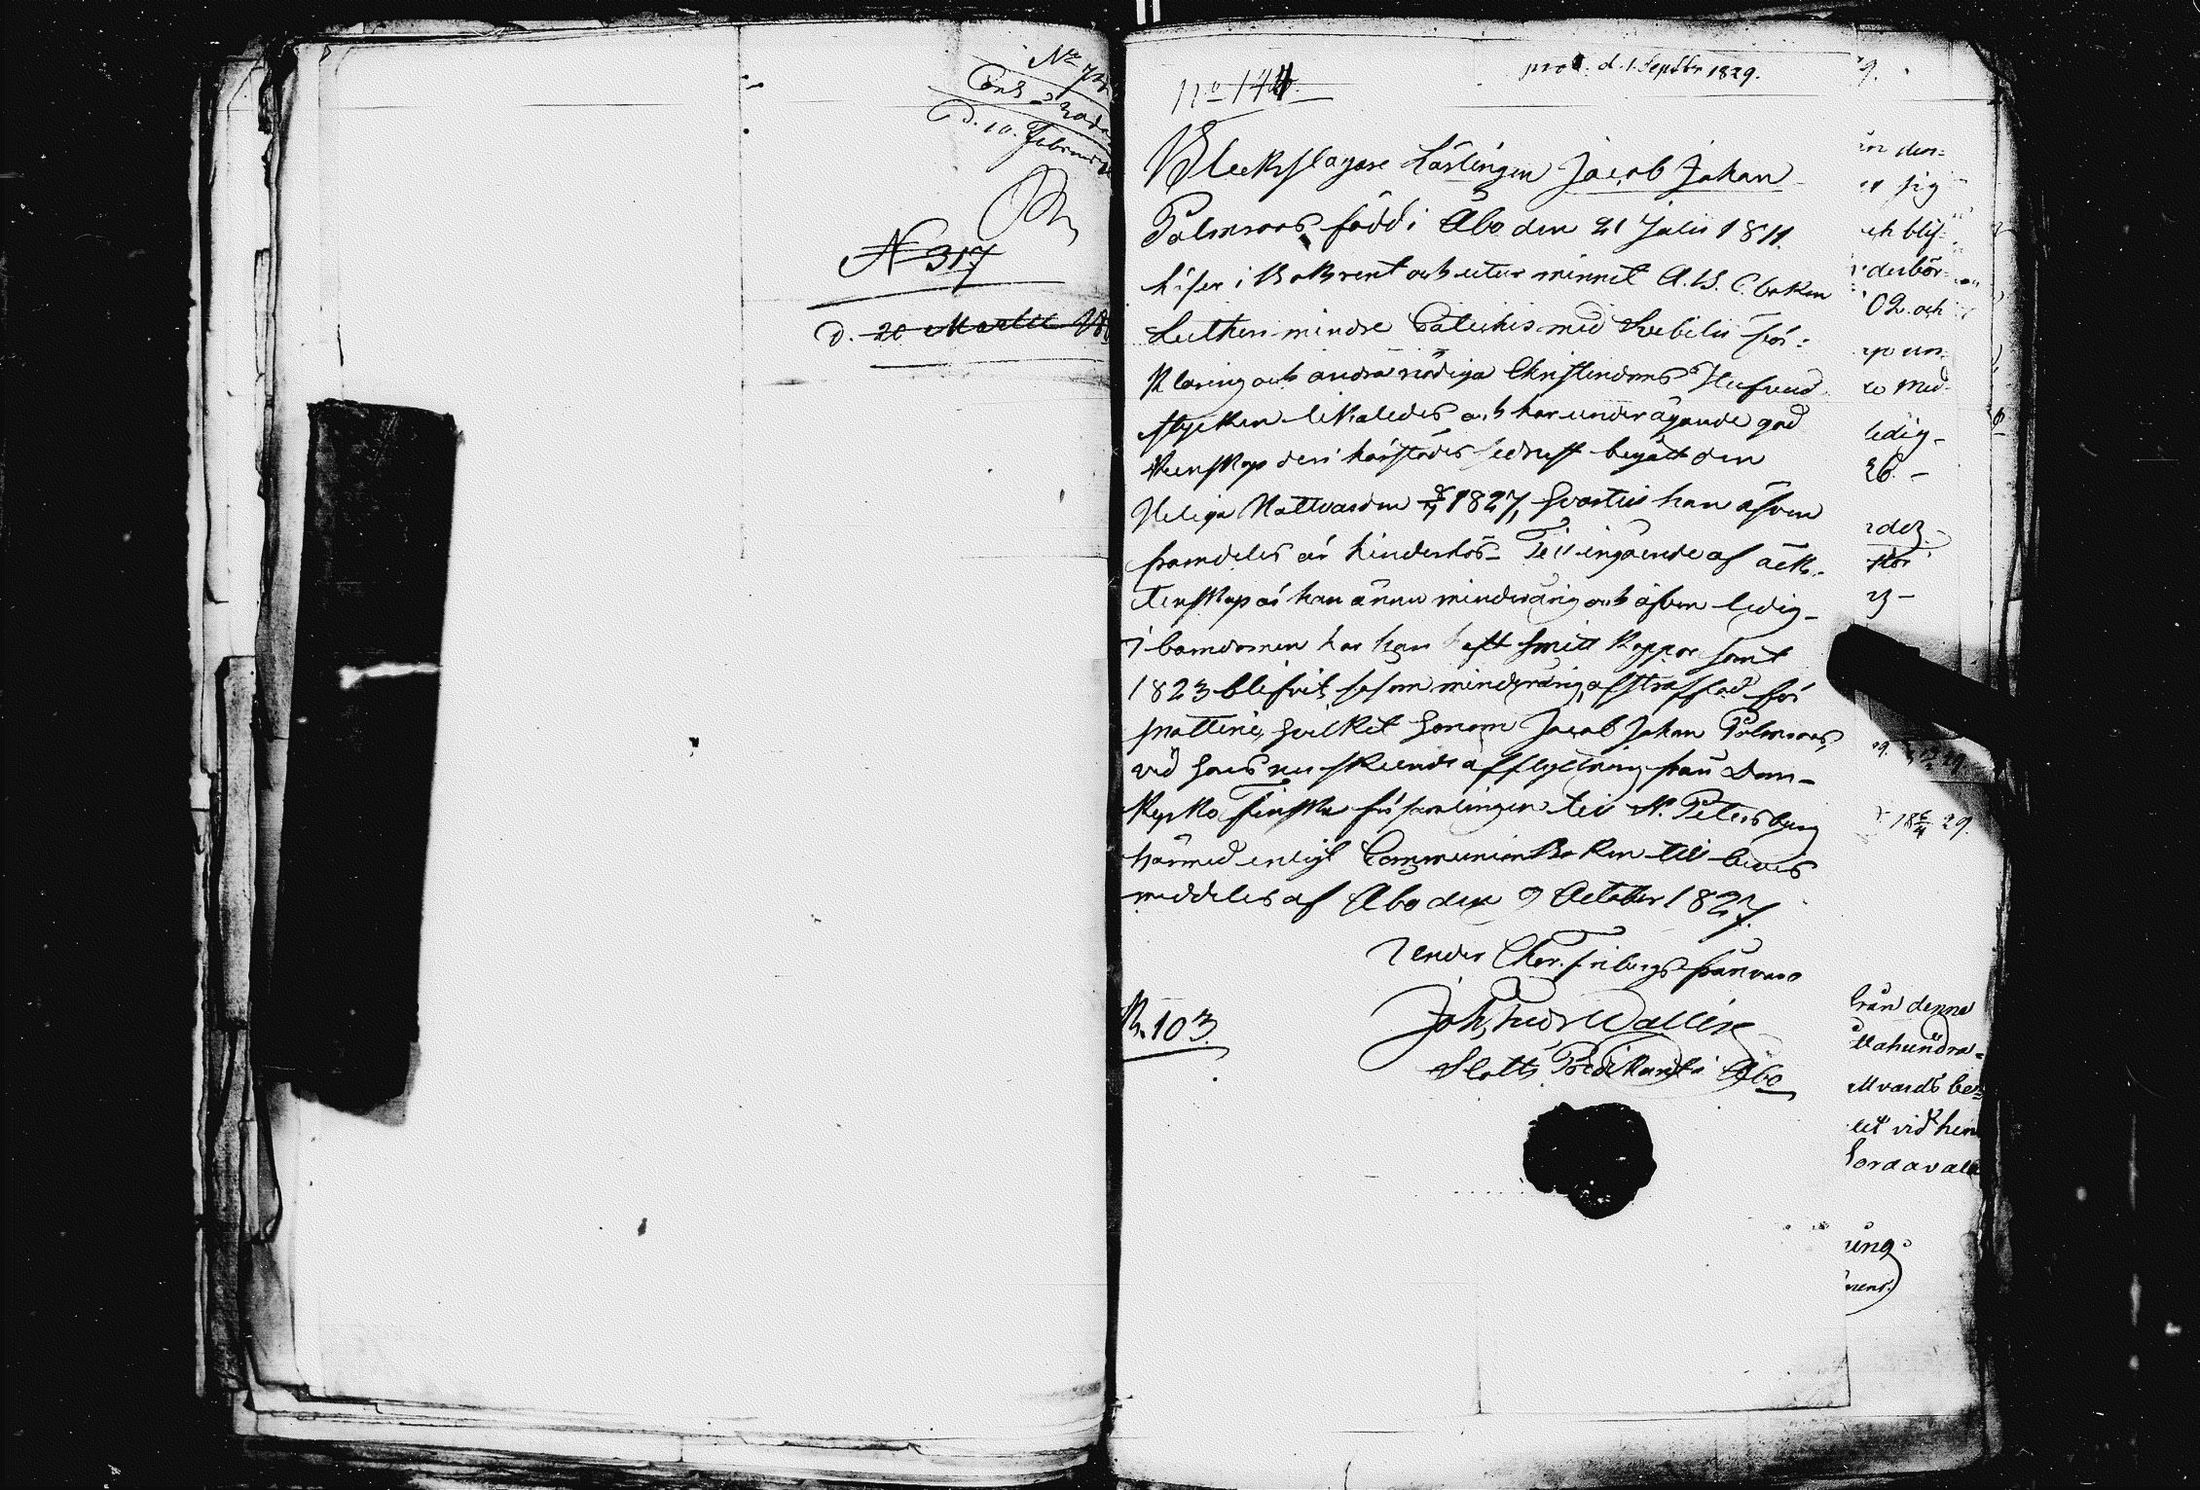 N 317
d. 20 Martii
d. 10. Februari
prod. d. 1. Septbr 1829.
no 144.
Bleckslagare Lärlingen Jacob Johan
Palmroos född i Åbo den 21 Julii 1811.
läser i Bok rent och utur minnet A.B.C. boken
Lutheri mindre Cateches med Svebilii för-
klaring och andra nödiga Christendoms Hufvud
stycken likaledes och har under ägande god
kunskap deri härstädes sednast begått den
Heliga Nattvarden 1827, hvartill han äfven
framdeles är hinderslös. Till ingående af äck-
tenskap är han ännu minderårig och äfven ledig.
I barndomen har han haft smitt koppor samt
1823 blifvit såsom minderårig afstraffad för
snatteri, hvilket honom Jacob Johan Palmroos,
vid hans nu skeende afflyttning från Dom-
kyrko Finska församlingen till St. Petersburg
härmed enligt Communion Boken till bevis
meddelas af Åbo den 9 October 1827.
Under Chor. Fribergs frånvaro
Joh. Fredr. Wallin
Slotts Predikant i Åbo
N. 103.
från denna
ttahundra-
ttvards be-
ut vid hen
Sordavala